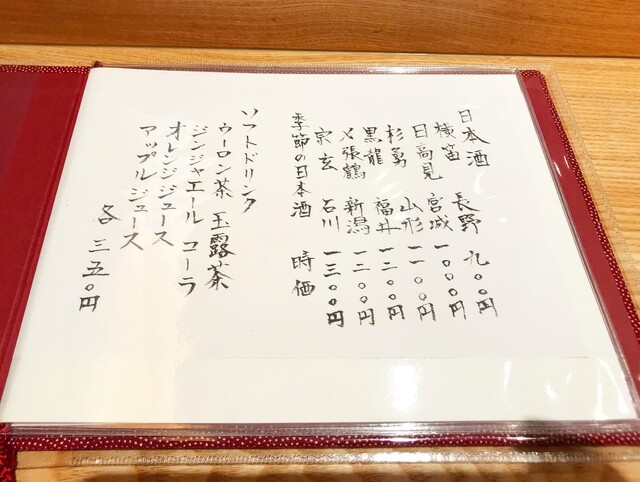 日本酒
横笛 長野 九〇〇円
日高見 宮城 一〇〇〇円
杉勇 山形 一一〇〇円
黒龍 福井 一二〇〇円
〆張鶴 新潟 一二〇〇円
宗玄 石川 一三〇〇円
季節の日本酒 時価
ソフトドリンク
ウーロン茶 玉露茶
ジンジャエール コーラ
オレンジジュース
アップルジュース
各 三五〇円